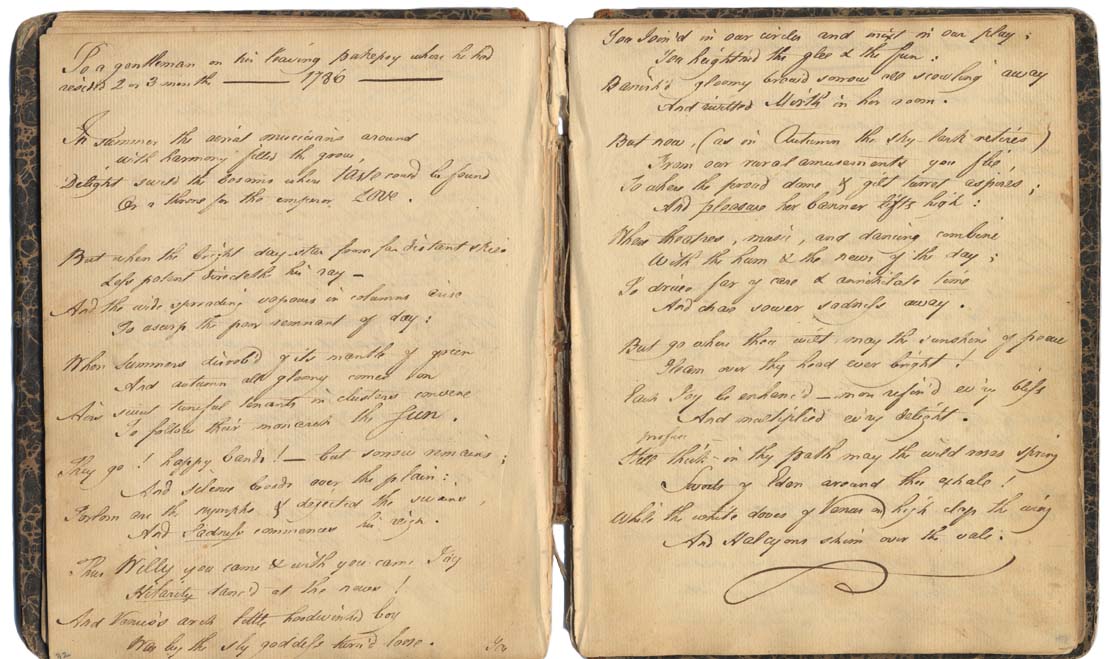 To a gentleman on his leaving pakepsy where he had
resided 2 or 3 month —— 1786 ——
In Summer the aerial musicians around
with harmony filled the grove,
Delight swell'd the bosoms where taste could be found
Or a throne for the emperor LOVE.
But when the bright day star from far distant skies
Less potent directeth his ray —
And the wide spreading vapours in columns arise
To usurp the poor remnant of day:
When Summers disrob'd of its mantle of green
And autumn all gloomy comes on
Airs sweet tuneful tenants in clusters convene
To follow their monarch the SUN.
They go! happy bands! — but sorrow remains;
And silence broods over the plain:
Forlorn are the nymphs & dejected the swains,
And Sadness commences his reign.
Thus Willy you came & with you came Joy
Hilarity danc'd at the news!
And Venus's arch little hoodwinked boy
Was by the sly goddess turn'd loose.
You
32
You Join'd in our circles and mixt in our play;
You heightned the glee & the fun:
Banish'd gloomy brow'd sorrow all scowling away
And invited Mirth in her room.
But now, (as in Autumn the sky-lark retires)
From our rural amusements you flie,
To where the proud dome & gilt turret aspires;
And pleasure her banner lifts high:
Where theatres, music, and dancing combine
With the hum & the news of the day;
To drive far of care & annihilate time
And chase sower sadness away.
But go where thou wilt may the sunshine of peace
Gleam over thy head ever bright!
Each Joy be enhanc'd — more refin'd ev'ry bliss
And multiplied ev'ry delight.
profuse
thick in thy path may the wild roses spring
Sweets of Eden around thee exhale!
While the white doves of Venus on high clap the wing
And Halcyons skim over the vale.